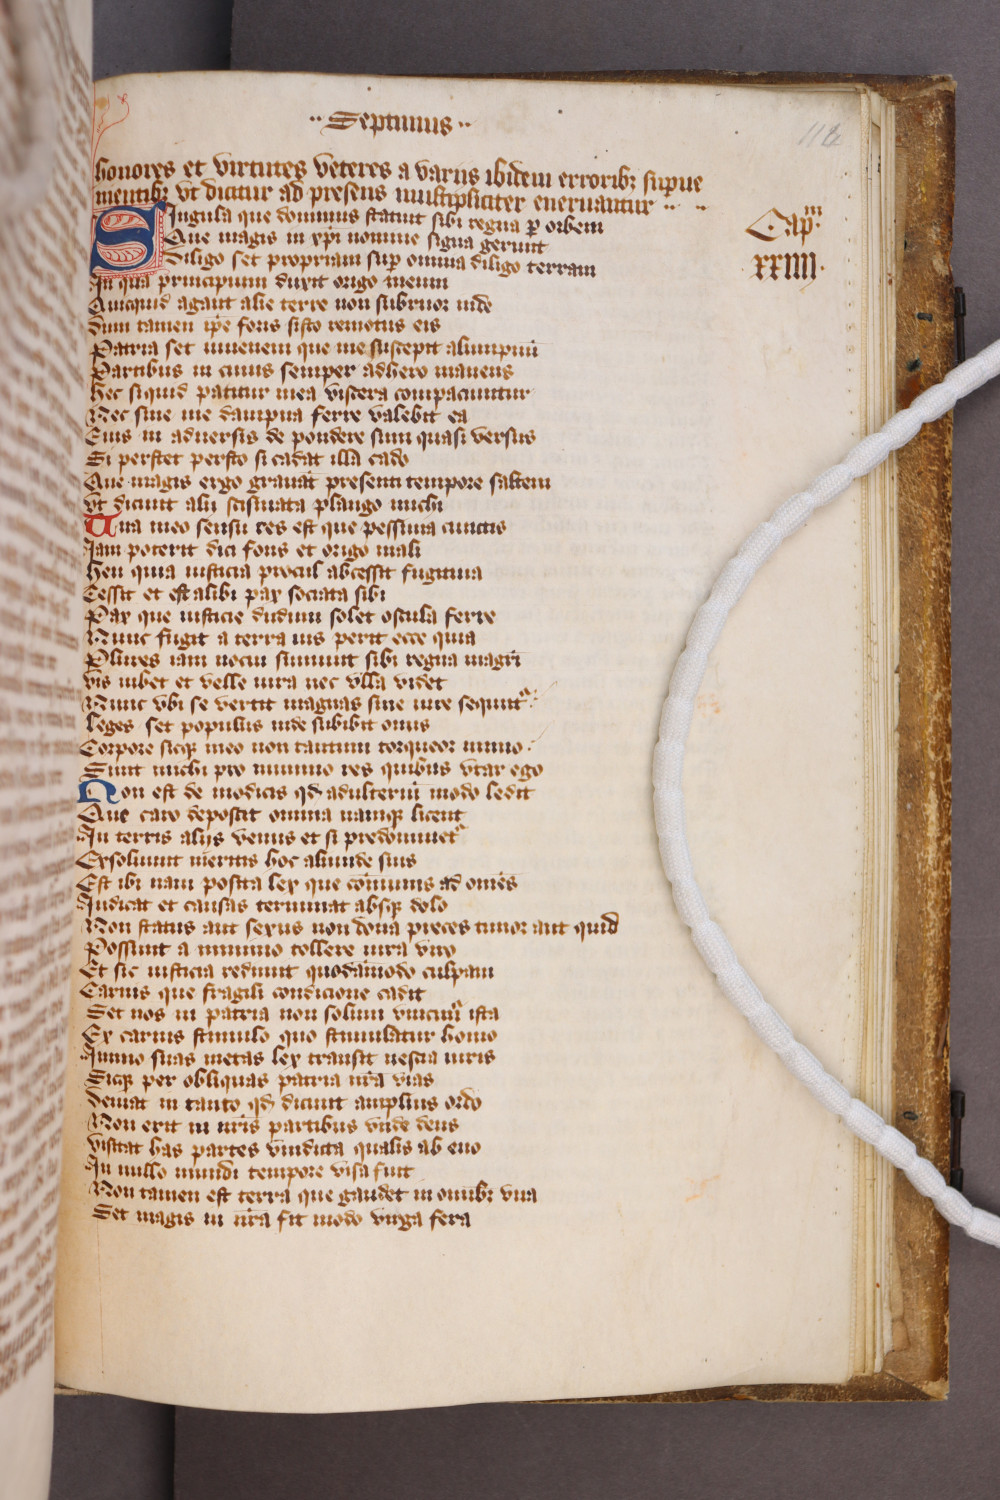 ·· Septimus ··
114
honores et virtutes veteres a varijs ibidem erroribꝫ supue
mentibꝫ vt dicitur ad presens multipliciter eneruantur ·· ··
Capm.
xxiiij.
Singula que dominus statuit sibi regna ꝑ orbem
Que magis in xpi nomine signa gerunt
Diligo set propriam suꝑ omnia diligo terram
In qua principium duxit origo meum
Quicquid agant alie terre non subruor inde
Dum tamen ip̄e foris sisto remotus eis
Patria set iuuenem que me suscepit alumpnum
Partibus in cuius semper adhero manens
Hec siquid patitur mea viscera compaciuntur
Nec sine me dampna ferre valebit ea
Eius in aduersis de pondere sum quasi versus
Si perstet persto si cadat illa cado
Que magis ergo grauat presenti tempore saltem
vt dicunt alij scismata plango michi
Una meo sensu res est que pessima cunctis
Iam poterit dici fons et origo mali
Heu quia iusticia procul abcessit fugitiua
Cessit et est alibi pax sociata sibi
Pax que iusticie dudum solet oscula ferre
Nunc fugit a terra ius perit ecce quia
Plures iam nocui sumunt sibi regna magri
vis iubet et velle iura nec vlla videt
Nunc vbi se vertit magnas sine iure sequntr̉
leges set populus inde subibit onus
Corpore sicqꝫ meo non tantum torqueor uno
Sunt michi pro minimo res quibus vtar ego
Non est de modicis qd̄ adulteriū modo ledit
Que caro deposcit omnia namqꝫ licent
In terris alijs venus et si predominetr̉
Exsoluunt meritis hoc aliunde suis
Est ibi nam posita lex que cōmunis ad om̄es
Iudicat et causas terminat absqꝫ dolo
Non status aut sexus non dona preces timor aut quid
Possunt a minimo tollere iura viro
Et sic iusticia redimit quodāmodo culpam
Carnis que fragili condicione cadit
Set nos in patria non solum vincimr̉ ista
Ex carnis stimulo quo stimulatur homo
Immo suas metas lex transit nescia iuris
Sicqꝫ per obliquas patria nr̄a vias
Deuiat in tanto qd̄ dicunt amplius ordo
Non erit in nr̄is partibus vnde deus
visitat has partes vindicta qualis ab euo
In nullo mundi tempore visa fuit
Non tamen est terra que gaudet in omnibꝫ vna
Set magis in nr̄a fit modo virga fera